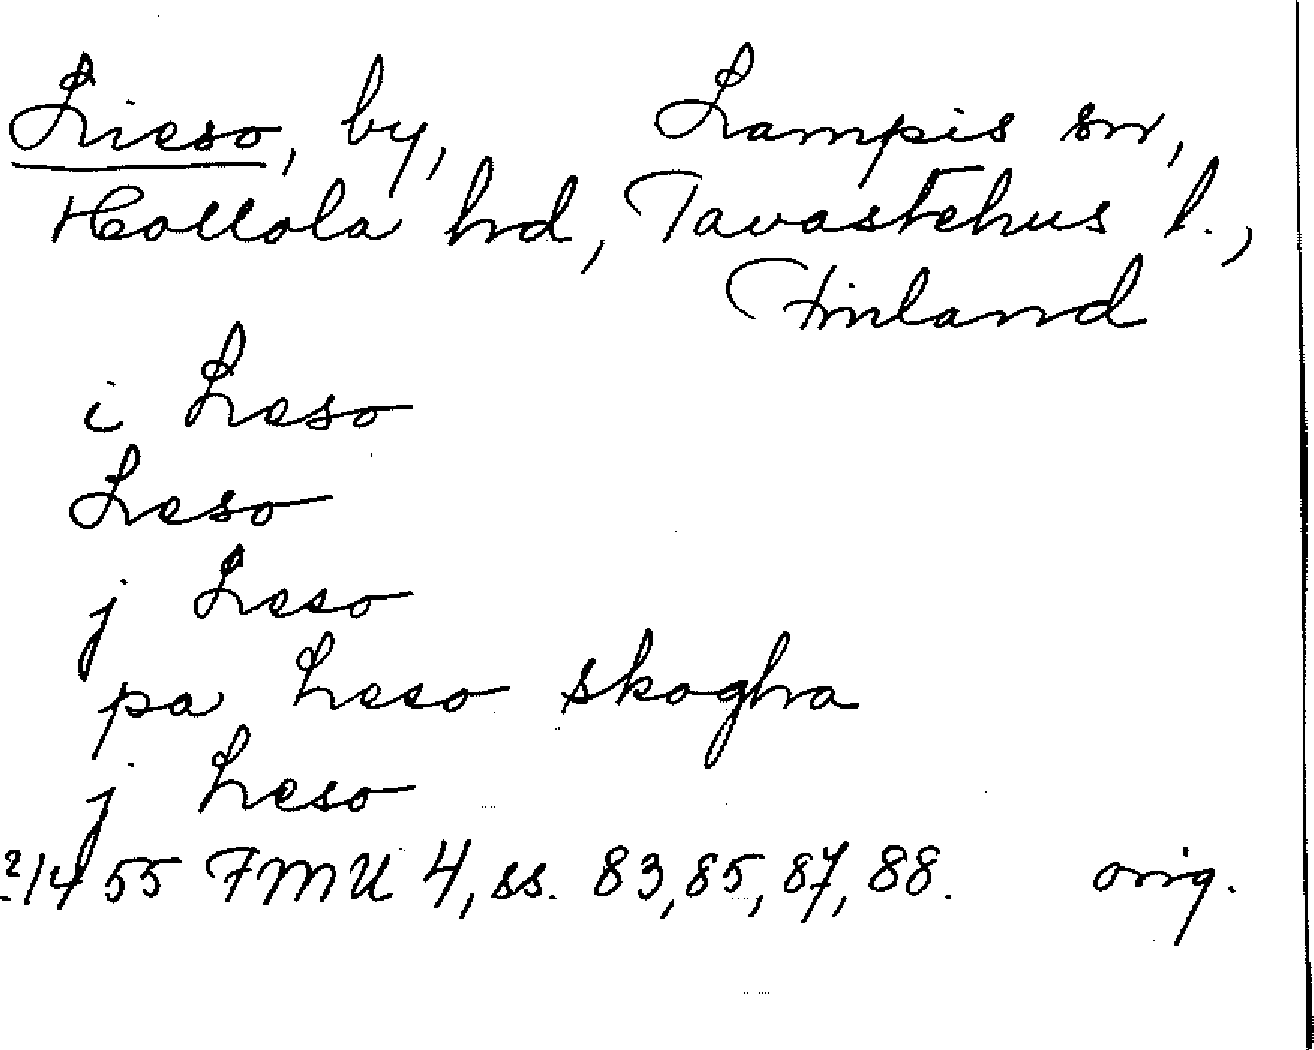 Lieso, by, Lampis sn,
Hollola hd, Tavastehus l.,
Finland
i Leso
Leso
j Leso
pa Leso skogha
j Leso
1455 FMU 4, ss. 83, 85, 87, 88. orig.